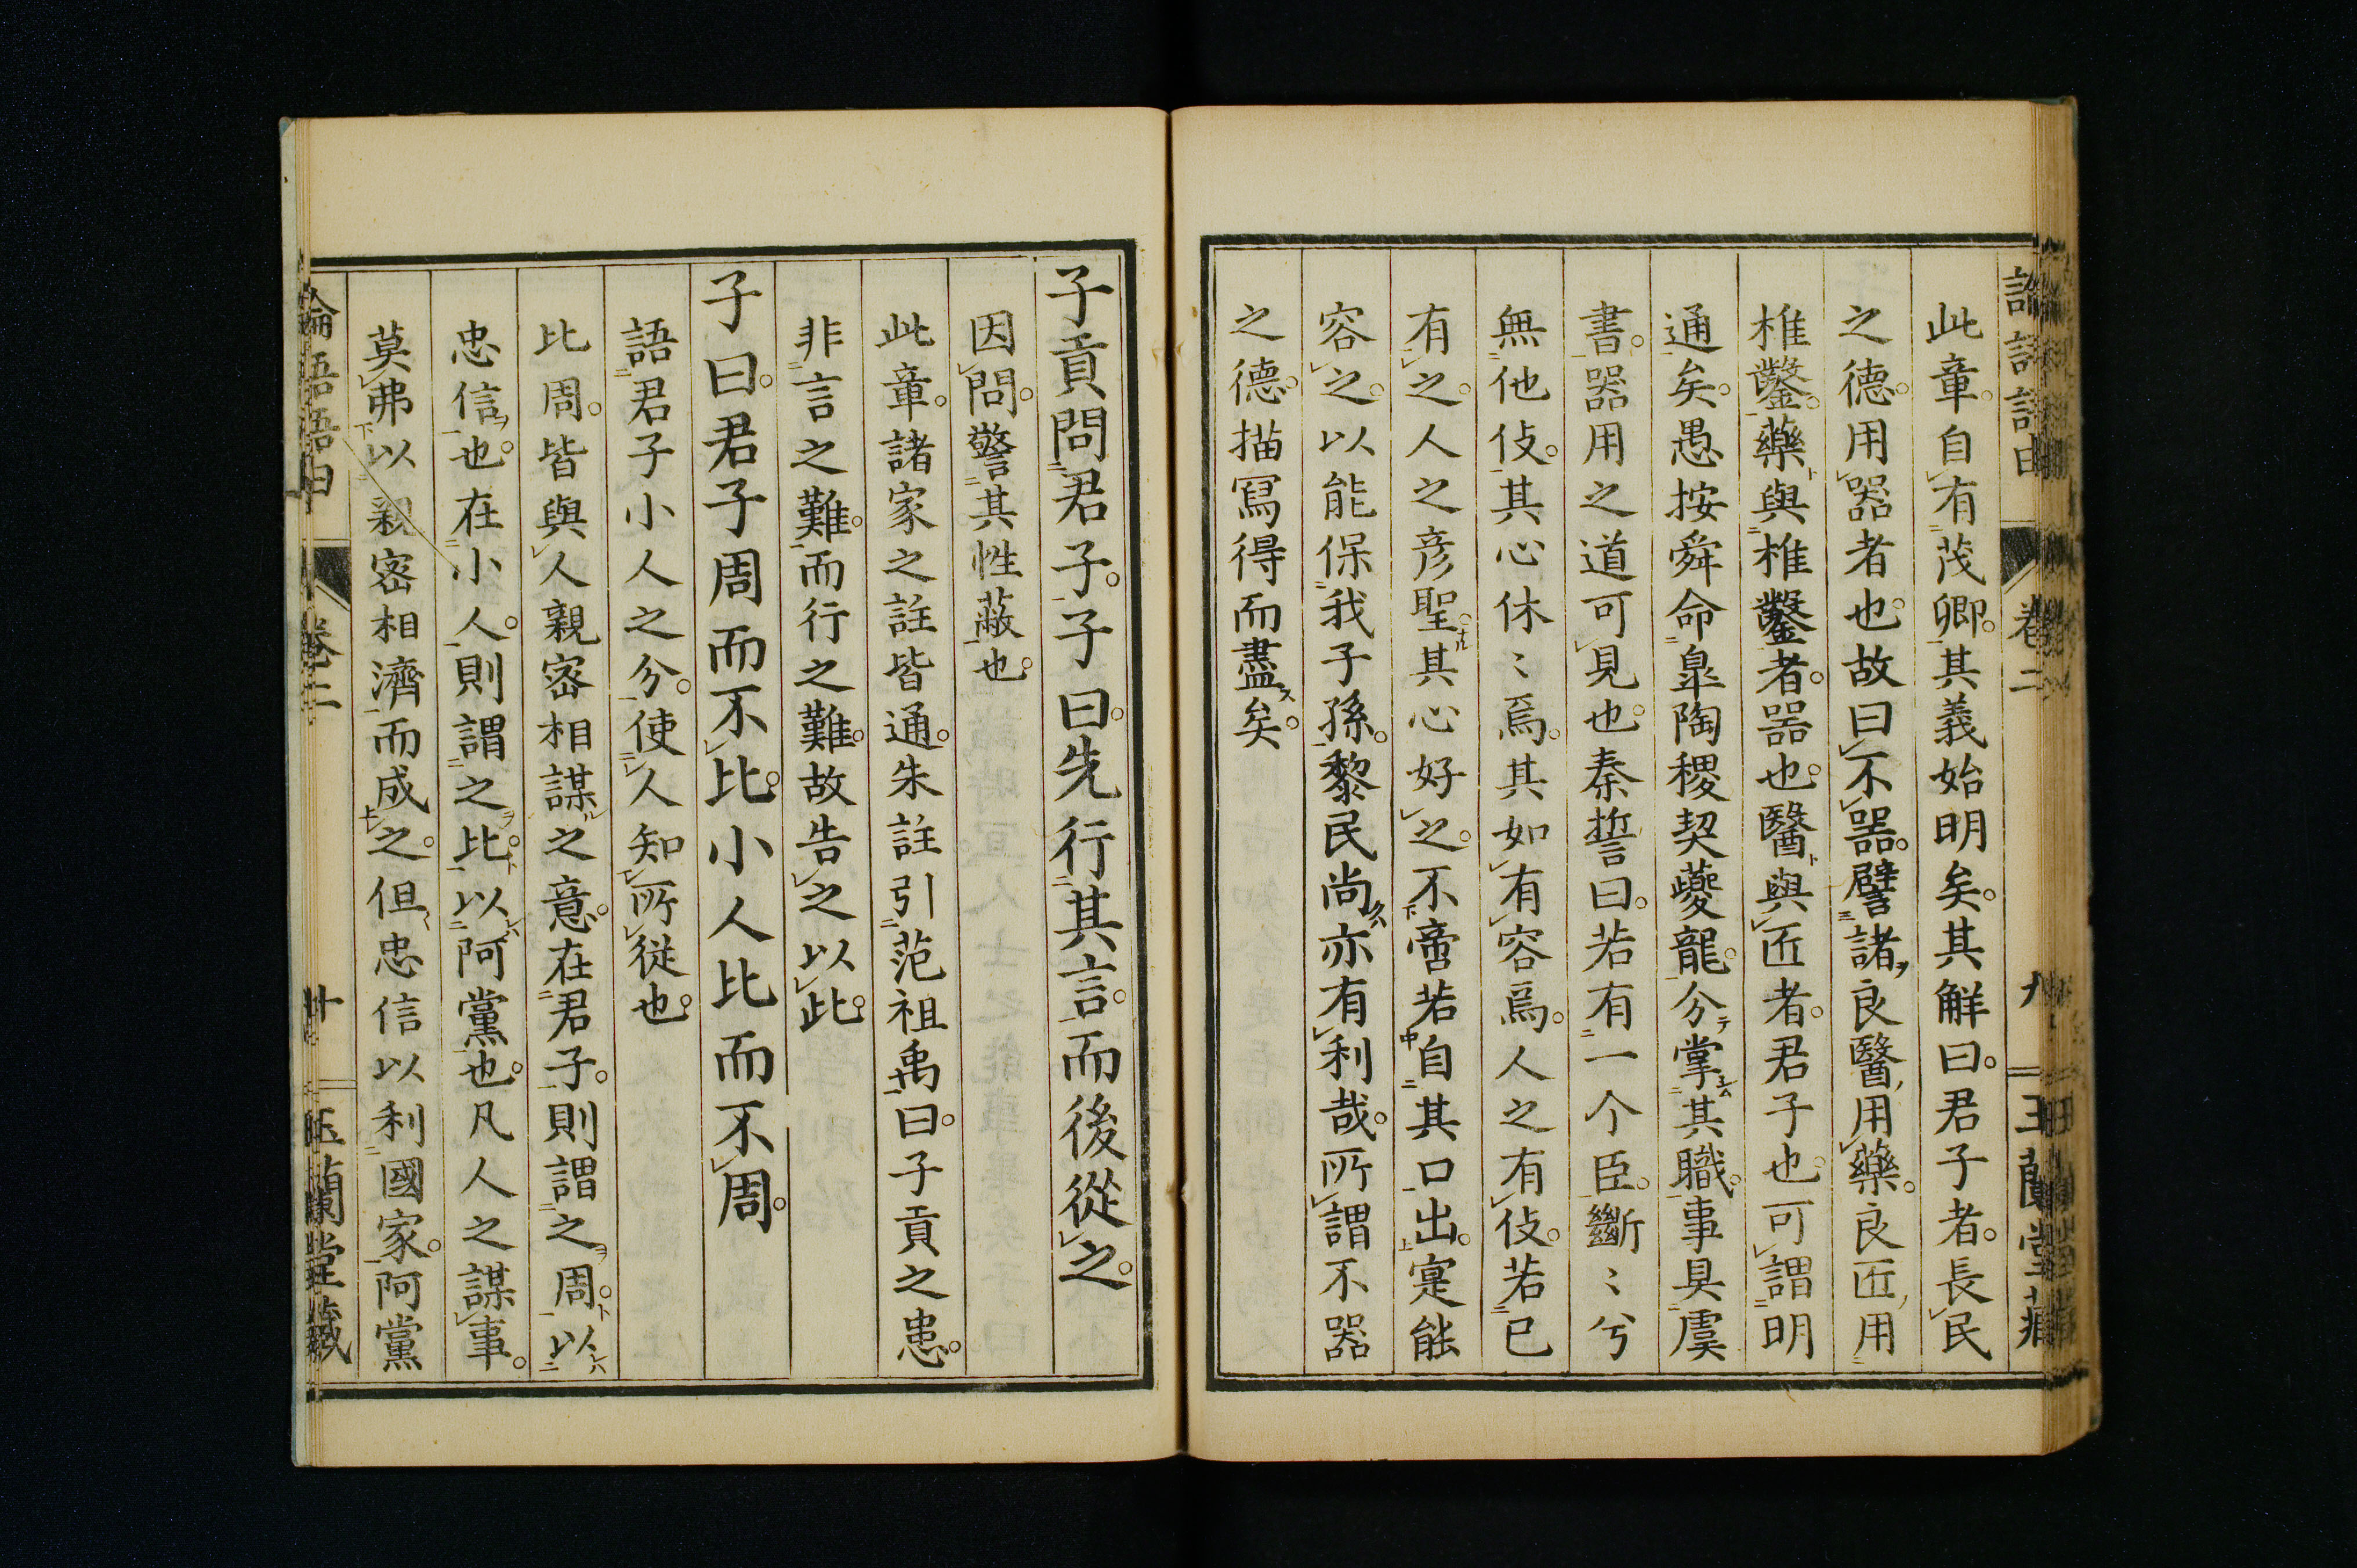 此章。自有茂卿。其義始明矣。其解曰。君子者。長民
之德。用器者也。故曰不器。譬諸良醫用藥。良匠用
椎鑿。藥與椎鑿者。器也。醫與匠者。君子也。可謂明
通矣。愚按舜命皐陶稷契夔龍。分掌其職。事具虞
書。器用之道可見也。秦誓曰。若有一个臣。斷〻兮
無他伎。其心休〻焉。其如有容焉。人之有伎。若己
有之。人之彦聖。其心好之。不啻若自其口出。寔能
容之。以能保我子孫。黎民尚亦有利哉。所謂不器
之德。描寫得而盡矣。
子貢問君子。子曰。先行其言。而後從之。
因問。警其性蔽也。
此章。諸家之註皆通。朱註引范祖禹曰。子貢之患。
非言之難。而行之難。故告之以此。
子曰。君子周而不比。小人比而不周。
語君子小人之分。使人知所從也。
比周。皆與人親密相謀之意。在君子。則謂之周。以
忠信也。在小人。則謂之比。以阿黨也。凡人之謀事。
莫弗以親密相濟而成之。但忠信以利國家。阿黨
論語語由 卷二 十 玉蘭堂藏